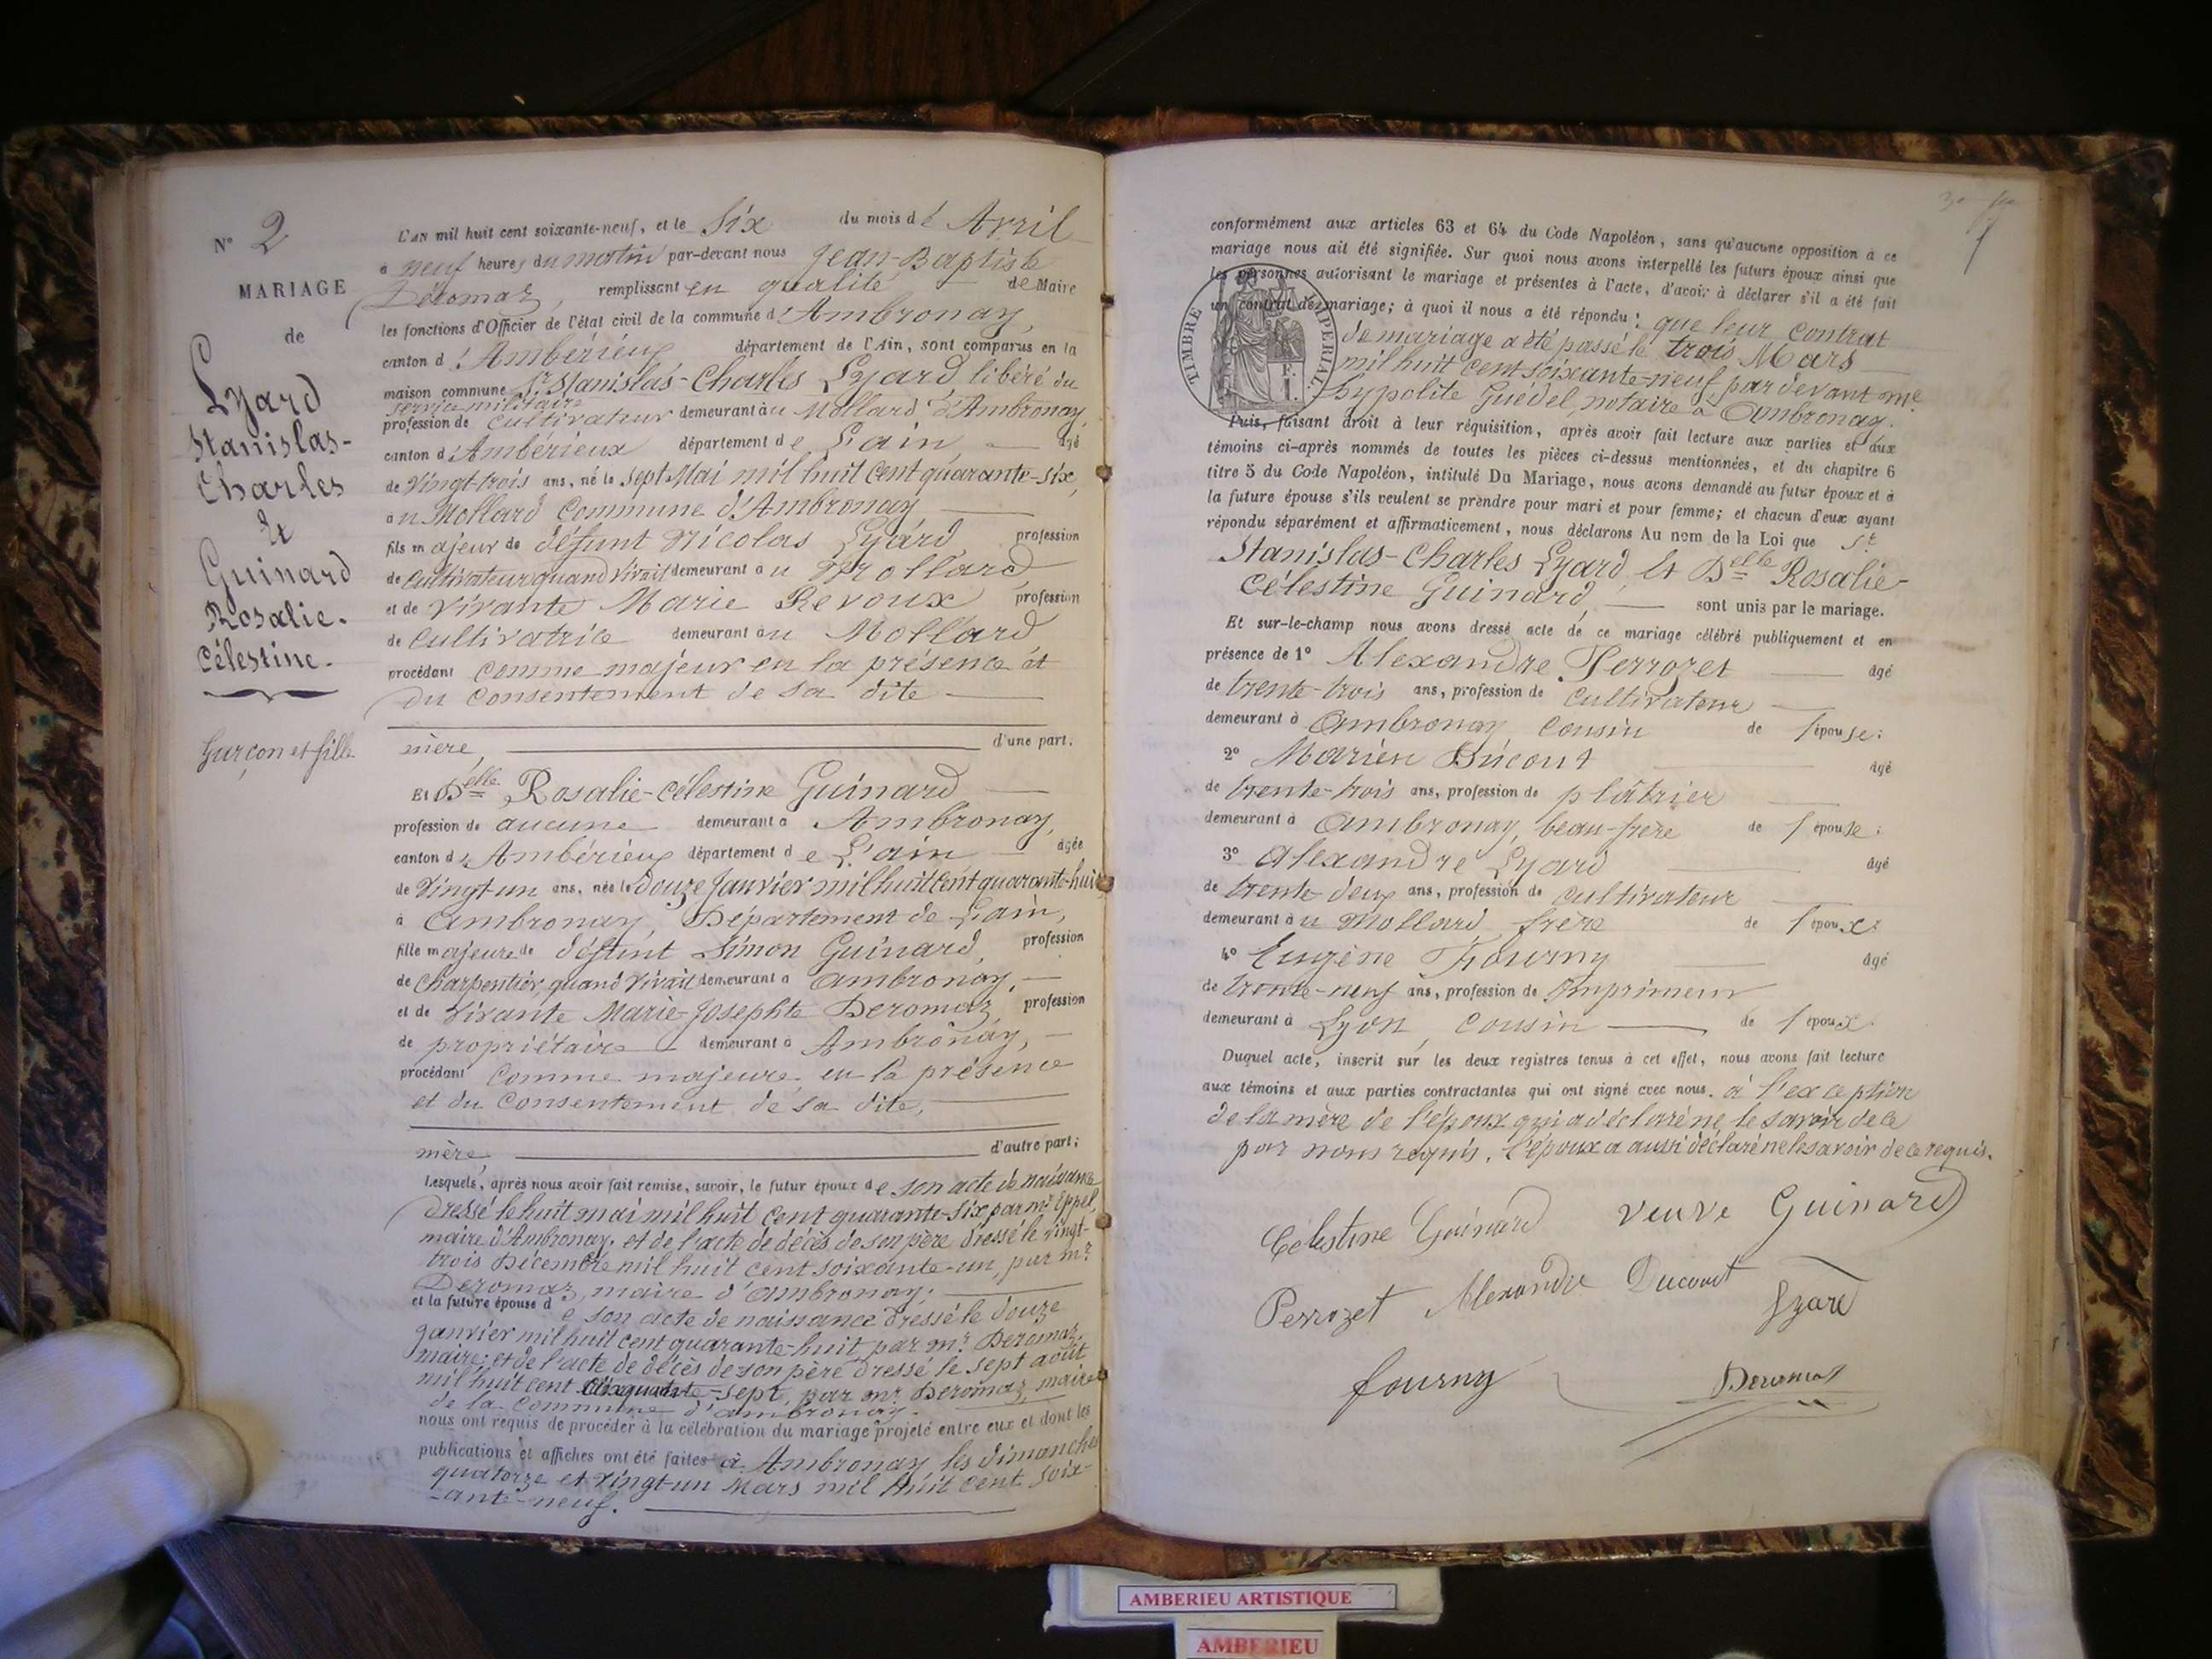 N° 2
MARIAGE
de
Lyard
Stanislas-
Charles
Et
Guinard
Rosalie-
Célestine.
Garçon et fille
L'AN mil huit cent soixante-neuf, et le Six du mois d'Avril
à neuf heures du matin par-devant nous Jean-Baptiste
Deromaz, remplissant en qualité de Maire
les fonctions d'Officier de l'état civil de la commune d'Ambronay,
canton d'Ambérieux département de l'Ain, sont comparus en la
maison commune Sr Stanislas-Charles Lyard, libéré du
service militaire
profession de cultivateur demeurant au Mollard d'Ambronay,
canton d'Ambérieux département de L'ain, âgé
de Vingt-trois ans, né le Sept Mai mil huit cent quarante-six,
au Mollard Commune d'Ambronay
fils majeur de défunt Nicolas Lyard, profession
de Cultivateur quand vivait demeurant au Mollard
et de vivante Marie Revoux profession
de Cultivatrice demeurant au Mollard
procédant comme majeur en la présence et
du consentement de sa dite
mère, d'une part.
Et Delle Rosalie-Célestine Guinard
profession de aucune demeurant à Ambronay,
canton d'Ambérieux département de L'ain âgée
de Vingt un ans, née le Douze Janvier mil huit cent quarante-huit
à Ambronay, Département de L'ain,
fille majeure de défunt Simon Guinard, profession
de Charpentier, quand vivait demeurant à Ambronay,
et de Vivante Marie-Josephte Deromaz, profession
de propriétaire demeurant à Ambronay,
procédant comme majeure en la présence
et du Consentement de sa dite,
mère d'autre part;
Lesquels, après nous avoir fait remise, savoir, le futur époux de son acte de naissance
dressé le huit mai mil huit cent quarante-six par mr Eppel,
maire d'Ambronay, et de l'acte de décès de son père dressé le vingt-
trois Décembre mil huit cent soixante-un, par mr
Deromaz, maire d'Ambronay;
et la future épouse de son acte de naissance dressé le douze
Janvier mil huit cent quarante-huit par mr Deromaz,
maire; et de l'acte de décès de son père dressé le sept août
mil huit cent cinquante-sept, par mr Deromaz, maire
de la Commune d'Ambronay.
nous ont requis de procéder à la célébration du mariage projeté entre eux et dont les
publications et affiches ont été faites à Ambronay les dimanches
quatorze et vingt-un Mars mil huit cent soix-
-ante-neuf.
conformément aux articles 63 et 64 du Code Napoléon, sans qu'aucune opposition à ce
mariage nous ait été signifiée. Sur quoi nous avons interpellé les futurs époux ainsi que
les personnes autorisant le mariage et présentes à l'acte, d'avoir à déclarer s'il a été fait
un contrat de mariage; à quoi il nous a été répondu: que leur contrat
de mariage a été passé le trois Mars
mil huit cent soixante-neuf par devant me
hypolite Guédel, notaire à Ambronay.
TIMBRE IMPÉRIAL
1 F.
Puis, faisant droit à leur réquisition, après avoir fait lecture aux parties et aux
témoins ci-après nommés de toutes les pièces ci-dessus mentionnées, et du chapitre 6
titre 5 du Code Napoléon, intitulé Du Mariage, nous avons demandé au futur époux et à
la future épouse s'ils veulent se prendre pour mari et pour femme; et chacun d'eux ayant
répondu séparément et affirmativement, nous déclarons Au nom de la Loi que Sr
Stanislas-Charles Lyard, Et Delle Rosalie-
Célestine Guinard, sont unis par le mariage.
Et sur-le-champ nous avons dressé acte de ce mariage célébré publiquement et en
présence de 1° Alexandre Perrozet âgé
de trente-trois ans, profession de cultivateur
demeurant à Ambronay cousin de l'épouse;
2° Marien Ducout âgé
de trente-trois ans, profession de plâtrier
demeurant à Ambronay, beau-frère de l'épouse;
3° Alexandre Lyard âgé
de trente-deux ans, profession de cultivateur
demeurant au Mollard, frère de l'époux;
4° Eugène Fourny âgé
de trente-neuf ans, profession de Imprimeur
demeurant à Lyon, cousin de l'époux.
Duquel acte, inscrit sur les deux registres tenus à cet effet, nous avons fait lecture
aux témoins et aux parties contractantes qui ont signé avec nous. à l'exception
de la mère de l'époux qui a déclaré ne le savoir de ce
par nous requis. l'époux a aussi déclaré ne le savoir de ce requis.
Célestine Guinard veuve Guinard
Perrozet Alexandre Ducout Lyard
fourny Deromaz
AMBERIEU ARTISTIQUE
AMBERIEU